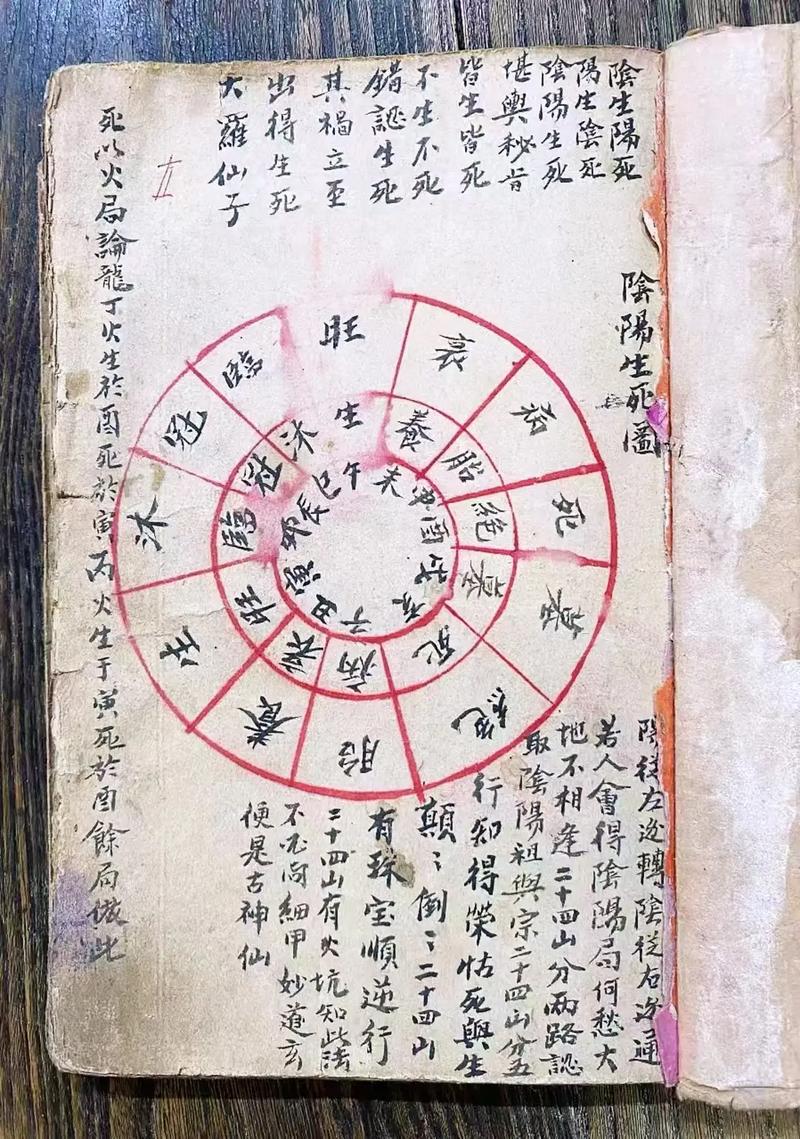 陰生陽死
陽生陰死
陰陽生死
堪輿秘旨
皆生皆死
不生不死
錯認生死
其禍立至
出得生死
大羅仙子
陰陽生死圖
旺
衰
病
死
墓
絕
胎
養
生
沐
冠
臨
生
養
胎
絕
墓
死
病
衰
旺
臨
冠
沐
午
未
申
酉
戌
亥
子
丑
寅
卯
辰
巳
陽從左边轉陰從右边通
若人會得陰陽局何愁大
地不相逢二十四山分兩路認
取陰陽祖與宗二十四山分五
行知得榮怙死與生
顛〻倒〻二十四山
有珠宝順逆行
二十四山有火坑知此法
不冘向細甲妙道玄
便是古神仙
死以火局論龍丁火生於酉死於寅丙火生于寅死於酉餘局倣此